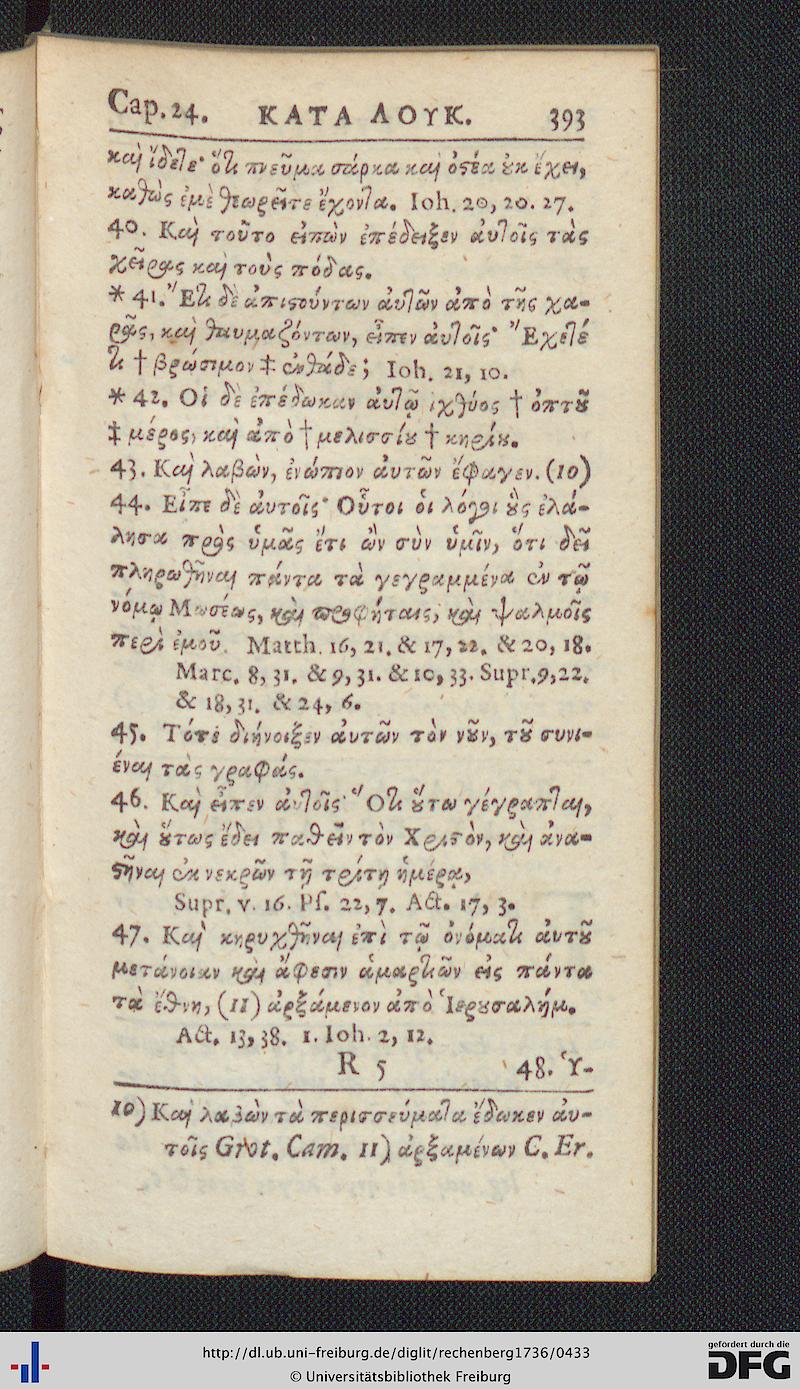 Cap. 24. ΚΑΤΑ ΛΟΥΚ. 393
καὶ ἴδετε· ὅτι πνεῦμα σάρκα καὶ ὀστέα οὐκ ἔχει,
καθὼς ἐμὲ θεωρεῖτε ἔχοντα. Ioh. 20, 20. 27.
40. Καὶ τοῦτο εἰπὼν ἐπέδειξεν αὐτοῖς τὰς
χεῖρας καὶ τοὺς πόδας.
* 41. Ἔτι δὲ ἀπιστούντων αὐτῶν ἀπὸ τῆς χα-
ρᾶς, καὶ θαυμαζόντων, εἶπεν αὐτοῖς· Ἔχετέ
τι † βρώσιμον ‡ ἐνθάδε; Ioh. 21, 10.
* 42. Οἱ δὲ ἐπέδωκαν αὐτῷ ἰχθύος † ὀπτοῦ
‡ μέρος, καὶ ἀπὸ † μελισσίου † κηρίου.
43. Καὶ λαβὼν, ἐνώπιον αὐτῶν ἔφαγεν. (10)
44. Εἶπε δὲ αὐτοῖς· Οὗτοι οἱ λόγοι οὓς ἐλά-
λησα πρὸς ὑμᾶς ἔτι ὢν σὺν ὑμῖν, ὅτι δεῖ
πληρωθῆναι πάντα τὰ γεγραμμένα ἐν τῷ
νόμῳ Μωσέως, καὶ προφήταις, καὶ ψαλμοῖς
περὶ ἐμοῦ. Matth. 16, 21. & 17, 22. & 20, 18.
Marc. 8, 31. & 9, 31. & 10, 33. Supr. 9, 22.
& 18, 31. & 24, 6.
45. Τότε διήνοιξεν αὐτῶν τὸν νοῦν, τοῦ συνι-
έναι τὰς γραφάς.
46. Καὶ εἶπεν αὐτοῖς· Ὅτι οὕτω γέγραπται,
καὶ οὕτως ἔδει παθεῖν τὸν Χριστὸν, καὶ ἀνα-
στῆναι ἐκ νεκρῶν τῇ τρίτῃ ἡμέρᾳ,
Supr. v. 16. Pſ. 22, 7. Act. 17, 3.
47. Καὶ κηρυχθῆναι ἐπὶ τῷ ὀνόματι αὐτοῦ
μετάνοιαν καὶ ἄφεσιν ἁμαρτιῶν εἰς πάντα
τὰ ἔθνη, (11) ἀρξάμενον ἀπὸ Ἱερουσαλήμ.
Act. 13, 38. 1. Ioh. 2, 12.
R 5 48. Ὑ-
10) Καὶ λαβὼν τὰ περισσεύματα ἔδωκεν αὐ-
τοῖς Grot. Cam. 11) ἀρξαμένων C. Er.
http://dl.ub.uni-freiburg.de/diglit/rechenberg1736/0433
© Universitätsbibliothek Freiburg
gefördert durch die
DFG